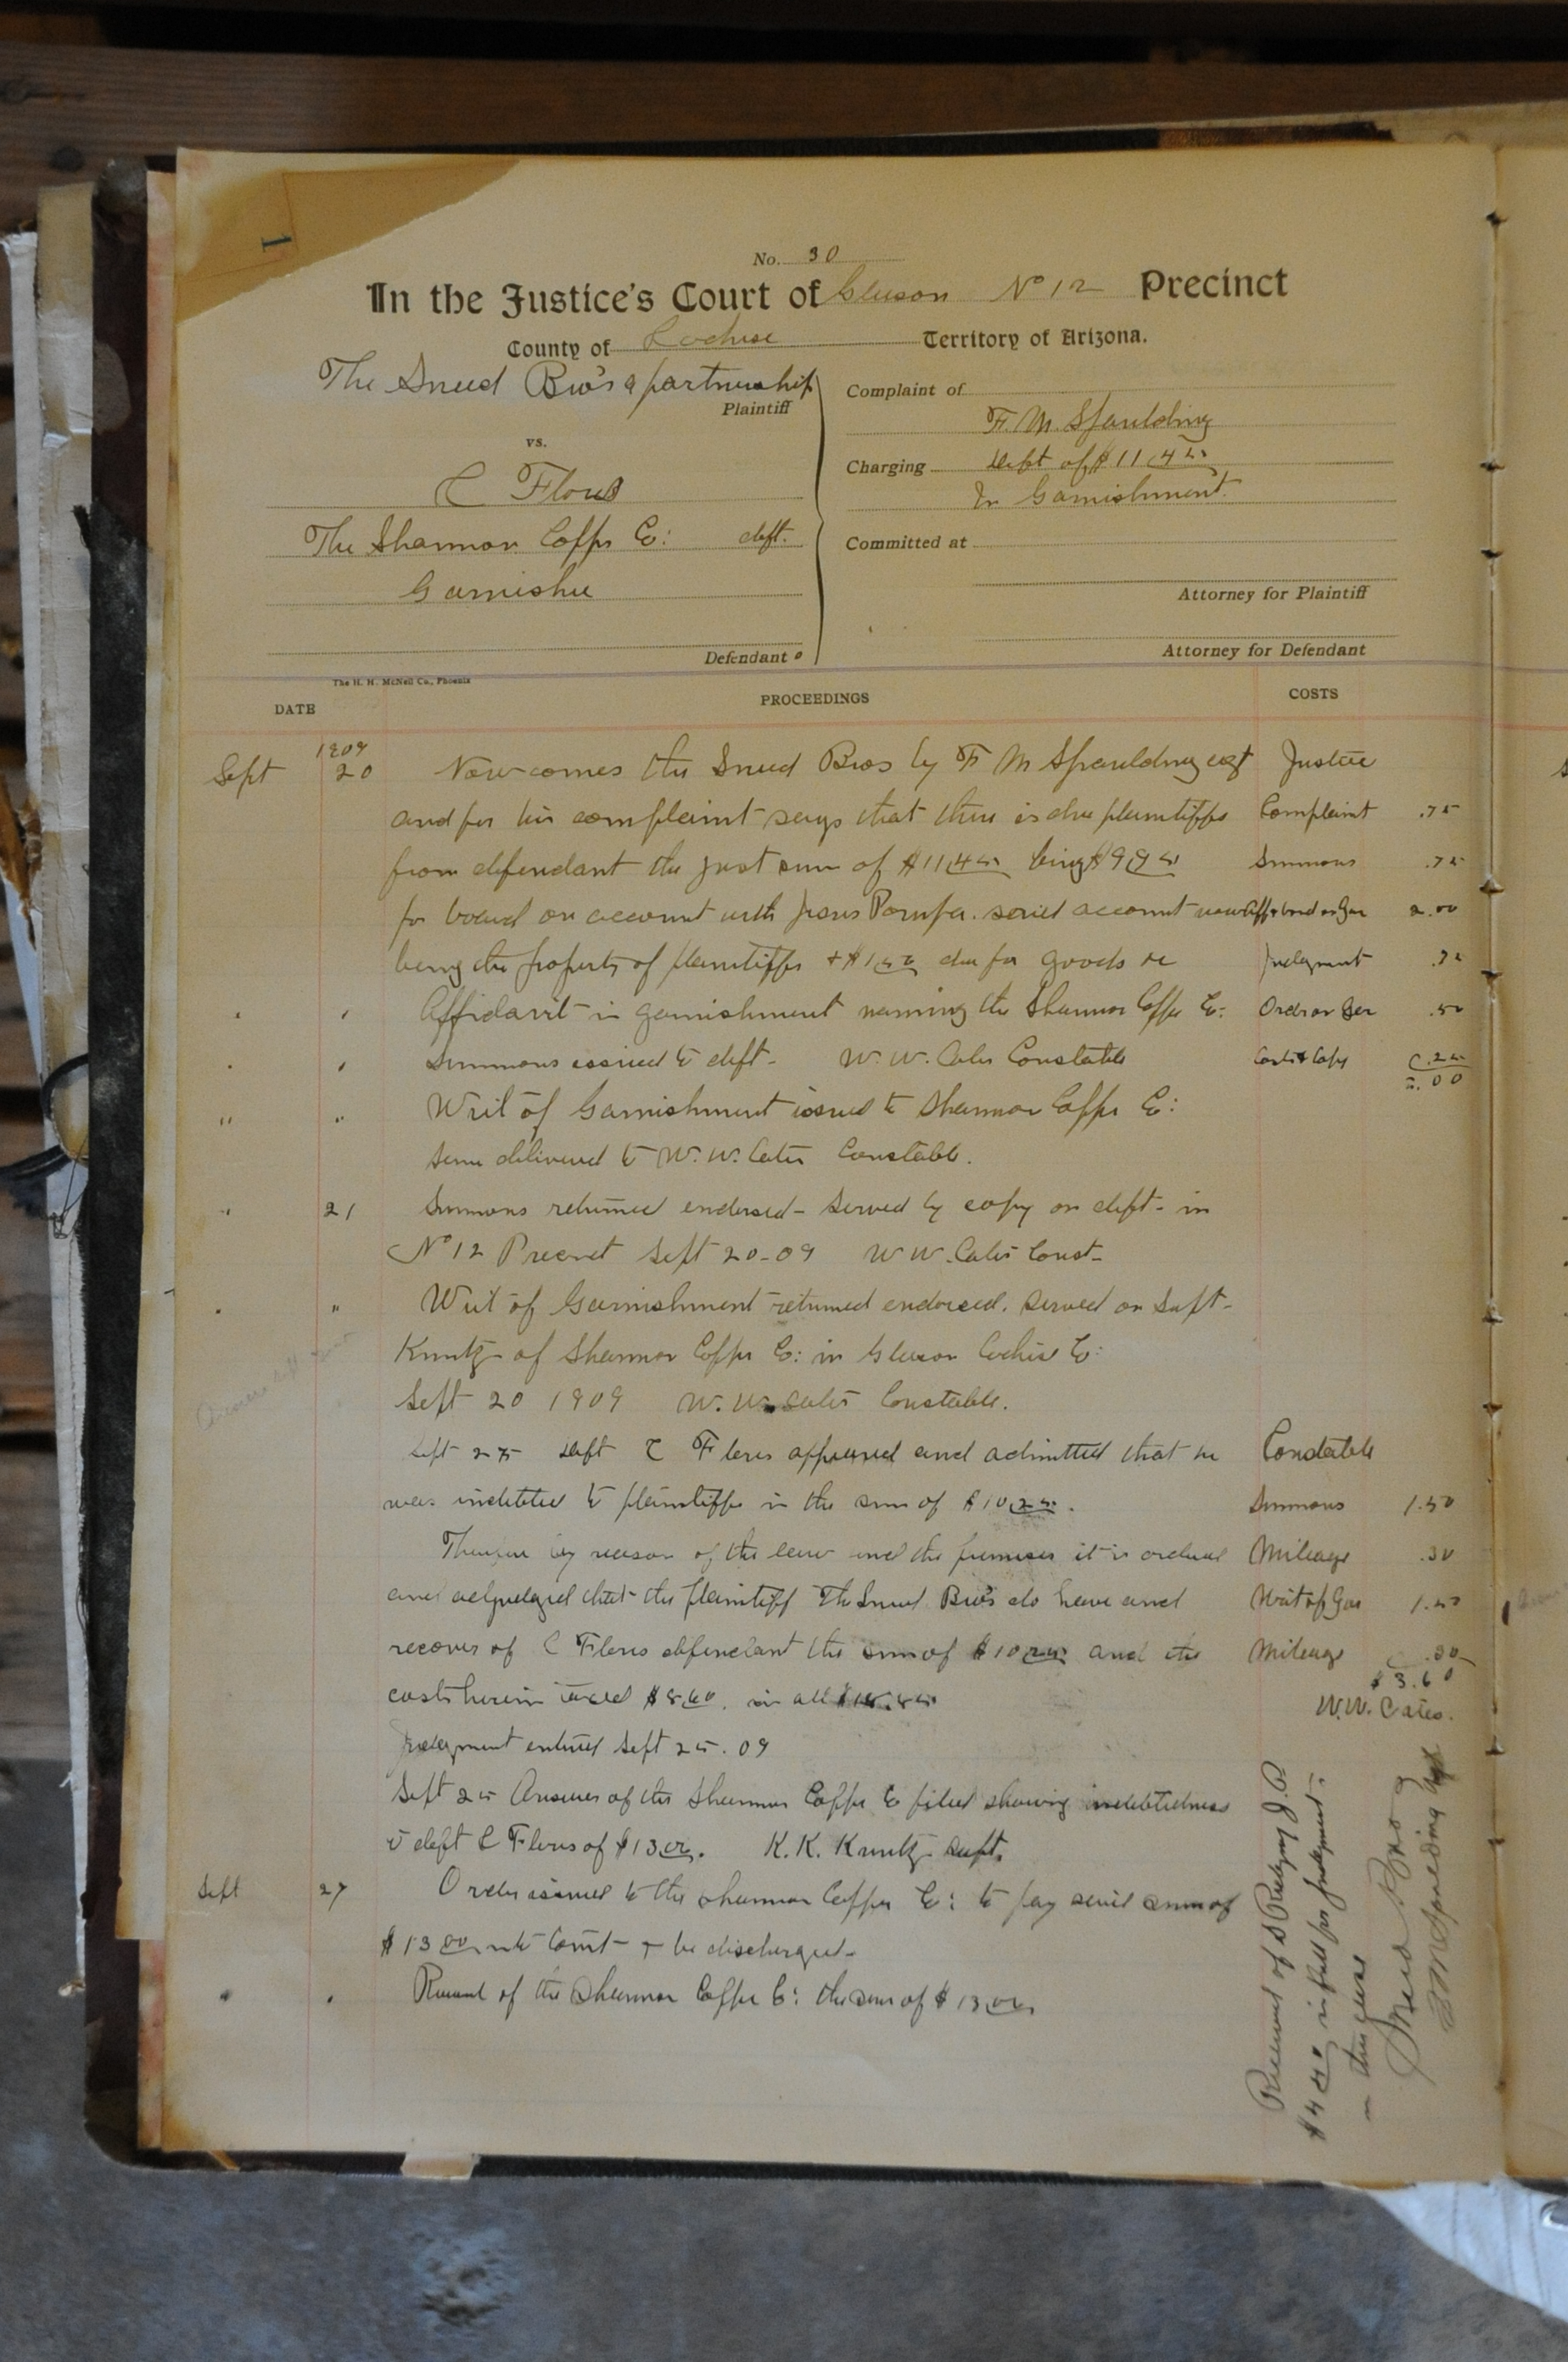 1
No. 30
In the Justice's Court of Gleeson No 12 Precinct
County of Cochise Territory of Arizona.
The Sneed Bro's a partnership
Plaintiff
vs.
C Flores
The Shannon Copper Co: deft.
Garnishee
Defendant
Complaint of
F. M. Spaulding
Charging Debt of $11.45
In Garnishment.
Committed at
Attorney for Plaintiff
Attorney for Defendant
The H. H. McNeil Co., Phoenix
DATE PROCEEDINGS COSTS
1909
Sept 20 Now comes the Sneed Bros by F M Spaulding agt Justice
and for his complaint says that there is due plaintiffs Complaint .75
from defendant the just sum of $11.45 being $9.95 Summons .75
for board on account with said account now 2.00
being the property of plaintiffs + $1.50 due for goods &c Judgment .75
" " Affidavit in garnishment naming the Shannon Copper Co: Order on Gar .50
" " Summons issued to deft - W. W. Cates Constable .25
5.00
" " Writ of Garnishment issued to Shannon Copper Co:
Same delivered to W. W. Cates Constable.
" 21 Summons returned endorsed - served by copy on deft - in
No 12 Precinct Sept 20-09 W W. Cates Const-
" " Writ of Garnishment returned endorsed. served on Supt-
Kuntz of Shannon Copper Co: in Gleeson Cochise Co:
Sept 20 1909 W. W. Cates Constable.
Sept 25 Deft C Flores appeared and admitted that he Constable
was indebted to plaintiffs in the sum of $10.25. Summons 1.50
Therefore by reason of the law and the premises it is ordered Mileage .30
and adjudged that the plaintiff The Sneed Bro's do have and Writ of Gar 1.50
recover of C Flores defendant the sum of $10.25 and the Mileage .30
$3.60
costs herein taxed $8.60. in all $18.85
W.W. Cates.
Judgment entered Sept 25. 09
Sept 25 Answer of the Shannon Copper Co filed showing indebtedness
to deft C Flores of $13.00. K. K. Kuntz Supt.
Sept 27 Order issued to the Shannon Copper Co: to pay said sum of
$13.00 into Court + be discharged-
" " Received of the Shannon Copper Co: the sum of $13.00
Received of J.P.
$4.40 in full for judgment
in this case
Sneed Bros
F M Spaulding Agt